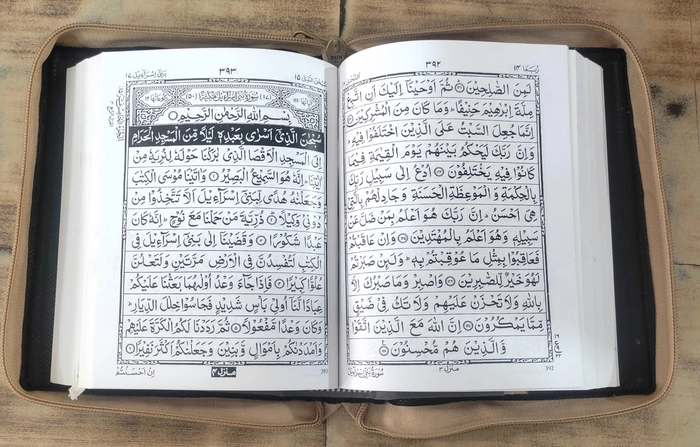 ربما ١٤
٣٩٢
لَمِنَ الصّٰلِحِيْنَ ثُمَّ اَوْحَيْنَاۤ اِلَيْكَ اَنِ اتَّبِعْ
مِلَّةَ اِبْرٰهِيْمَ حَنِيْفًا وَمَا كَانَ مِنَ الْمُشْرِكِيْنَ
اِنَّمَا جُعِلَ السَّبْتُ عَلَى الَّذِيْنَ اخْتَلَفُوْا فِيْهِ
وَاِنَّ رَبَّكَ لَيَحْكُمُ بَيْنَهُمْ يَوْمَ الْقِيٰمَةِ فِيْمَا
كَانُوْا فِيْهِ يَخْتَلِفُوْنَ اُدْعُ اِلٰى سَبِيْلِ رَبِّكَ
بِالْحِكْمَةِ وَالْمَوْعِظَةِ الْحَسَنَةِ وَجَادِلْهُمْ بِالَّتِيْ
هِيَ اَحْسَنُ اِنَّ رَبَّكَ هُوَ اَعْلَمُ بِمَنْ ضَلَّ عَنْ
سَبِيْلِهٖ وَهُوَ اَعْلَمُ بِالْمُهْتَدِيْنَ وَاِنْ عَاقَبْتُمْ
فَعَاقِبُوْا بِمِثْلِ مَا عُوْقِبْتُمْ بِهٖ وَلَىِٕنْ صَبَرْتُمْ
لَهُوَ خَيْرٌ لِّلصّٰبِرِيْنَ وَاصْبِرْ وَمَا صَبْرُكَ اِلَّا
بِاللّٰهِ وَلَا تَحْزَنْ عَلَيْهِمْ وَلَا تَكُ فِيْ ضَيْقٍ
مِّمَّا يَمْكُرُوْنَ اِنَّ اللّٰهَ مَعَ الَّذِيْنَ اتَّقَوْا
وَّالَّذِيْنَ هُمْ مُّحْسِنُوْنَ
منزل ٣
392
بنی اسرآءیل ١٧
٣٩٣
بِسْمِ اللّٰهِ الرَّحْمٰنِ الرَّحِيْمِ
سُبْحٰنَ الَّذِيْۤ اَسْرٰى بِعَبْدِهٖ لَيْلًا مِّنَ الْمَسْجِدِ الْحَرَامِ
اِلَى الْمَسْجِدِ الْاَقْصَا الَّذِيْ بٰرَكْنَا حَوْلَهٗ لِنُرِيَهٗ مِنْ
اٰيٰتِنَا اِنَّهٗ هُوَ السَّمِيْعُ الْبَصِيْرُ وَاٰتَيْنَا مُوْسَى الْكِتٰبَ
وَجَعَلْنٰهُ هُدًى لِّبَنِيْۤ اِسْرَآءِيْلَ اَلَّا تَتَّخِذُوْا مِنْ
دُوْنِيْ وَكِيْلًا ذُرِّيَّةَ مَنْ حَمَلْنَا مَعَ نُوْحٍ اِنَّهٗ كَانَ
عَبْدًا شَكُوْرًا وَقَضَيْنَاۤ اِلٰى بَنِيْۤ اِسْرَآءِيْلَ فِي
الْكِتٰبِ لَتُفْسِدُنَّ فِي الْاَرْضِ مَرَّتَيْنِ وَلَتَعْلُنَّ
عُلُوًّا كَبِيْرًا فَاِذَا جَآءَ وَعْدُ اُوْلٰىهُمَا بَعَثْنَا عَلَيْكُمْ
عِبَادًا لَّنَاۤ اُولِيْ بَاْسٍ شَدِيْدٍ فَجَاسُوْا خِلٰلَ الدِّيَارِ
وَكَانَ وَعْدًا مَّفْعُوْلًا ثُمَّ رَدَدْنَا لَكُمُ الْكَرَّةَ عَلَيْهِمْ
وَاَمْدَدْنٰكُمْ بِاَمْوَالٍ وَّبَنِيْنَ وَجَعَلْنٰكُمْ اَكْثَرَ نَفِيْرًا
منزل ٤
اِنْ اَحْسَنْتُمْ
393